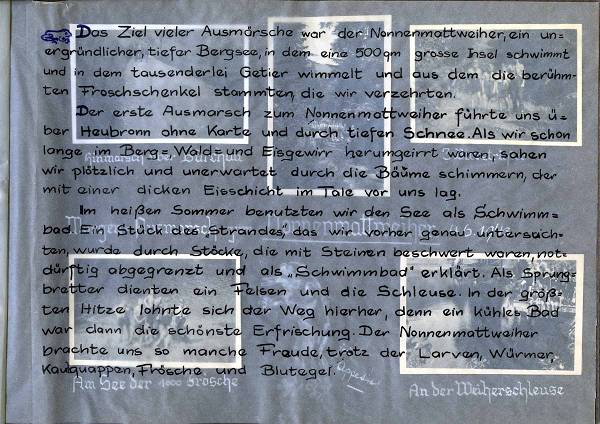 Das Ziel vieler Ausmärsche war der Nonnenmattweiher, ein un=
ergründlicher, tiefer Bergsee, in dem eine 500qm grosse Insel schwimmt
und in dem tausenderlei Getier wimmelt und aus dem die berühm=
ten Froschschenkel stammten, die wir verzehrten.
Der erste Ausmarsch zum Nonnenmattweiher führte uns ü=
ber Heubronn ohne Karte und durch tiefen Schnee. Als wir schon
lange im Berg= Wald= und Eisgewirr herumgeirrt waren, sahen
wir plötzlich und unerwartet durch die Bäume schimmern, der
mit einer dicken Eisschicht im Tale vor uns lag.
Im heißen Sommer benutzten wir den See als Schwimm=
bad. Ein Stück des Strandes, das wir vorher genau untersuch=
ten, wurde durch Stöcke, die mit Steinen beschwert waren, not=
dürftig abgegrenzt und als „Schwimmbad" erklärt. Als Sprung=
bretter dienten ein Felsen und die Schleuse. In der größ=
ten Hitze lohnte sich der Weg hierher, denn ein kühles Bad
war dann die schönste Erfrischung. Der Nonnenmattweiher
brachte uns so manche Freude, trotz der Larven, Würmer,
Kaulquappen, Frösche und Blutegel.
Nonnenmattweiher
Am See der 1000 Frösche
An der Weiherschleuse